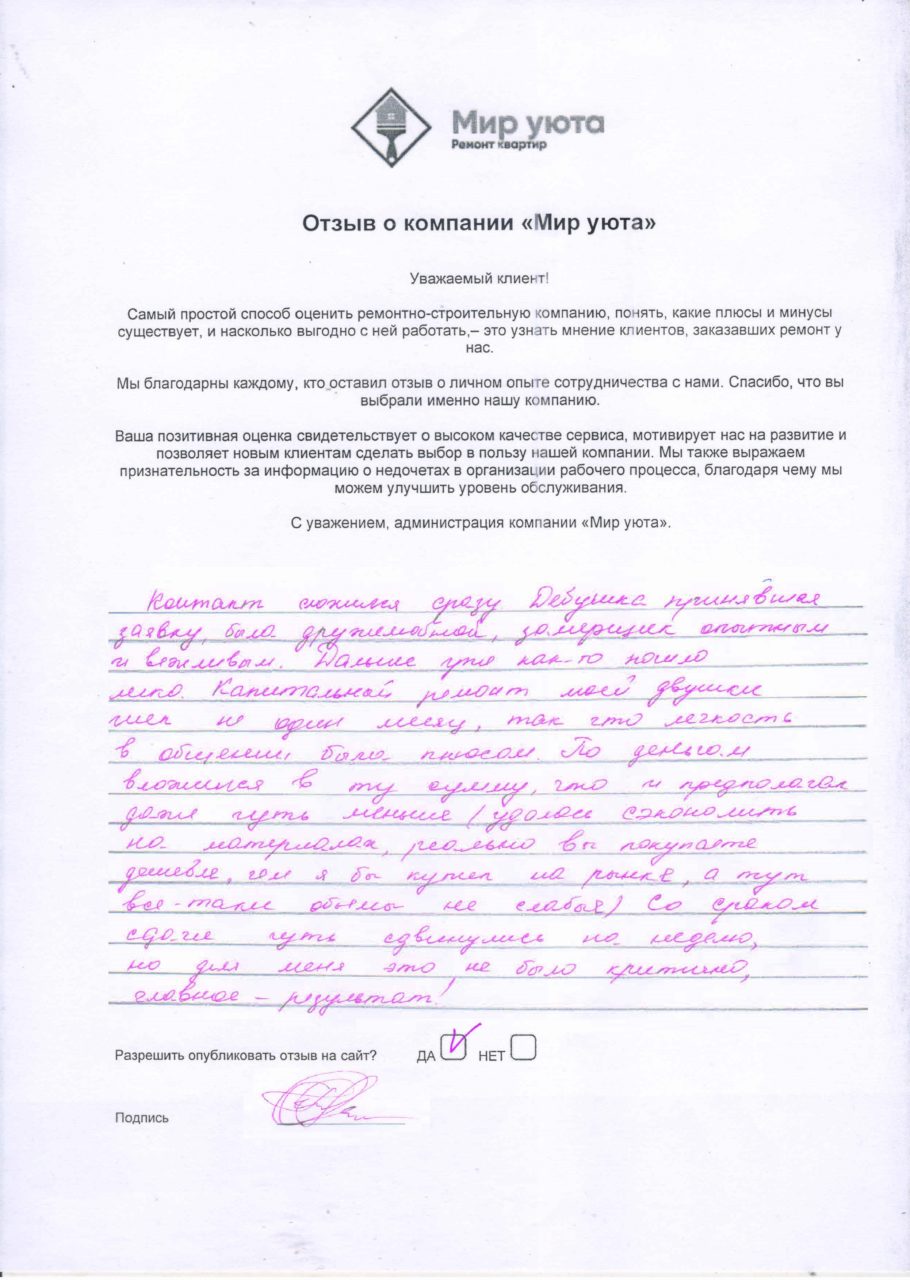 Мир уюта
Ремонт квартир
Отзыв о компании «Мир уюта»
Уважаемый клиент!
Самый простой способ оценить ремонтно-строительную компанию, понять, какие плюсы и минусы
существует, и насколько выгодно с ней работать,– это узнать мнение клиентов, заказавших ремонт у
нас.
Мы благодарны каждому, кто оставил отзыв о личном опыте сотрудничества с нами. Спасибо, что вы
выбрали именно нашу компанию.
Ваша позитивная оценка свидетельствует о высоком качестве сервиса, мотивирует нас на развитие и
позволяет новым клиентам сделать выбор в пользу нашей компании. Мы также выражаем
признательность за информацию о недочетах в организации рабочего процесса, благодаря чему мы
можем улучшить уровень обслуживания.
С уважением, администрация компании «Мир уюта».
Контакт сложился сразу Девушка принявшая
заявку, была дружелюбной, замерщик опытным
и вежливым. Дальше уже как-то пошло
легко. Капитальный ремонт моей двушки
шел не один месяц, так что легкость
в общении была плюсом. По деньгам
вложился в ту сумму, что и предполагал
даже чуть меньше (удалось сэкономить
на материалах, реально вы покупаете
дешевле, чем я бы купил на рынке, а тут
все-таки объемы не слабые) Со сроком
сдачи чуть сдвинулись на неделю,
но для меня это не было критично,
главное – результат!
Разрешить опубликовать отзыв на сайт? ДА НЕТ
Подпись